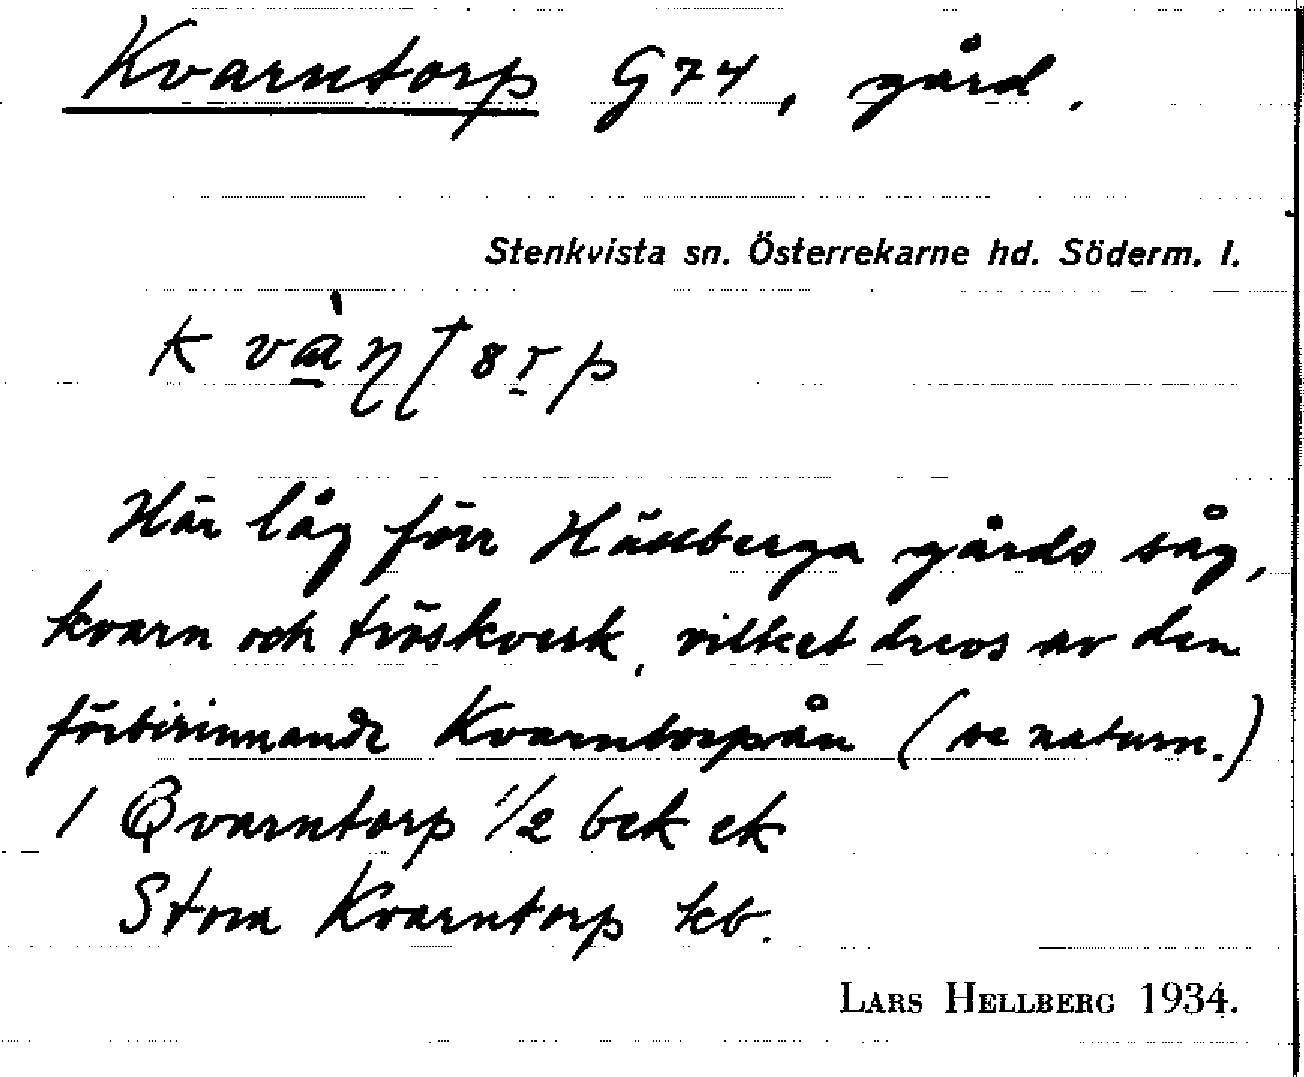 Kvarntorp G74, gård.
Stenkvista sn. Österrekarne hd. Söderm. l.
Här låg förr Hällberga gårds såg,
kvarn och tröskverk, vilket drevs av den
förbirinnande Kvarntorpån (se naturn.)
1 Qvarntorp 1/2 bek ek
Stora Kvarntorp kb.
LARS HELLBERG 1934.